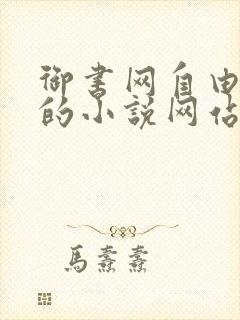 御书网自由
的小说网站
馬纛纛